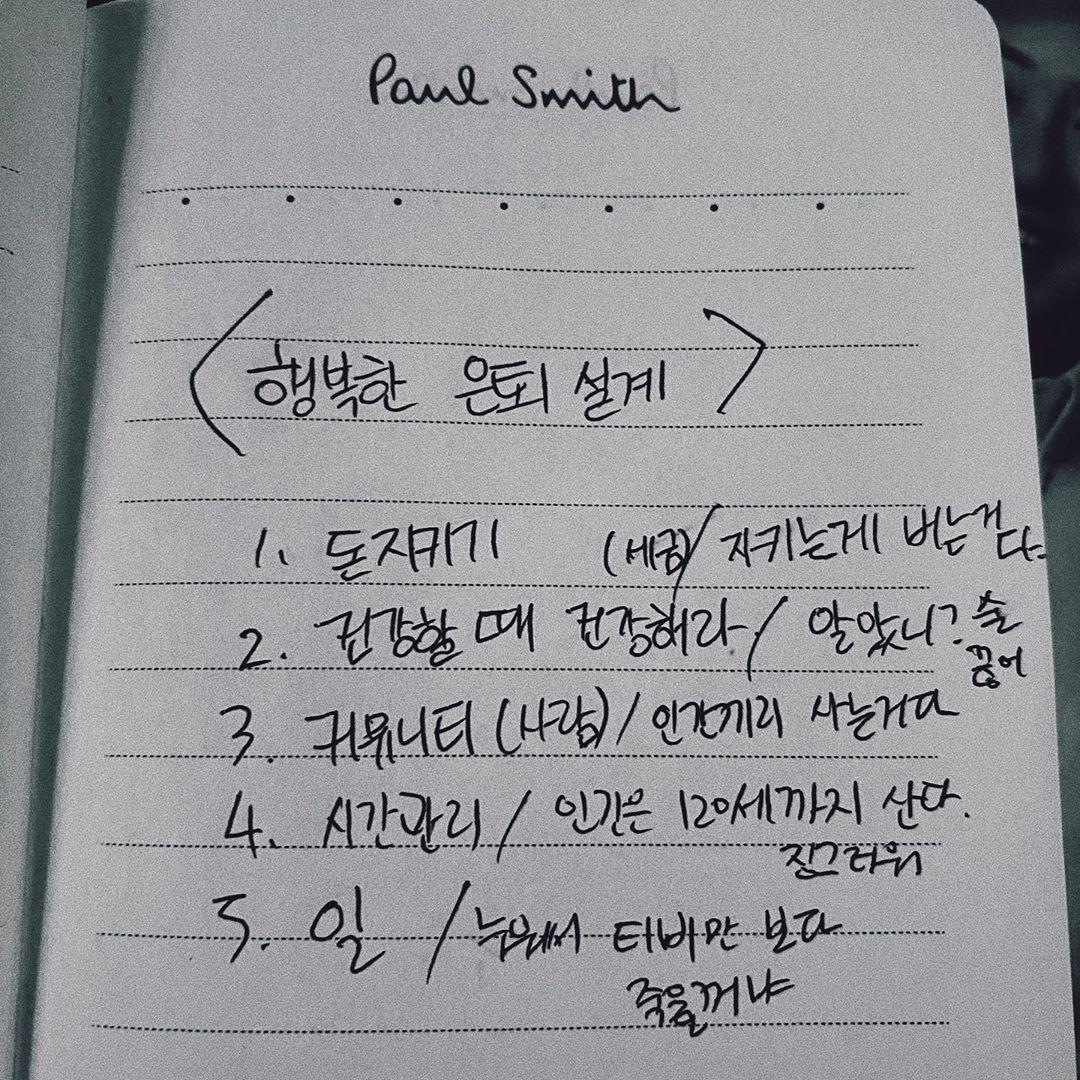 Paul Smith
<행복한 은퇴 설계>
1. 돈지키기 (세금)/ 지키는게 버는거다.
2. 건강할 때 건강해라/ 알았니? 술
끊어
3. 커뮤니티 (사람)/ 인간끼리 사는거다
4. 시간관리/ 인간은 120세까지 산다.
징그러워
5. 일 / 누워서 티비만 보다
죽을꺼냐